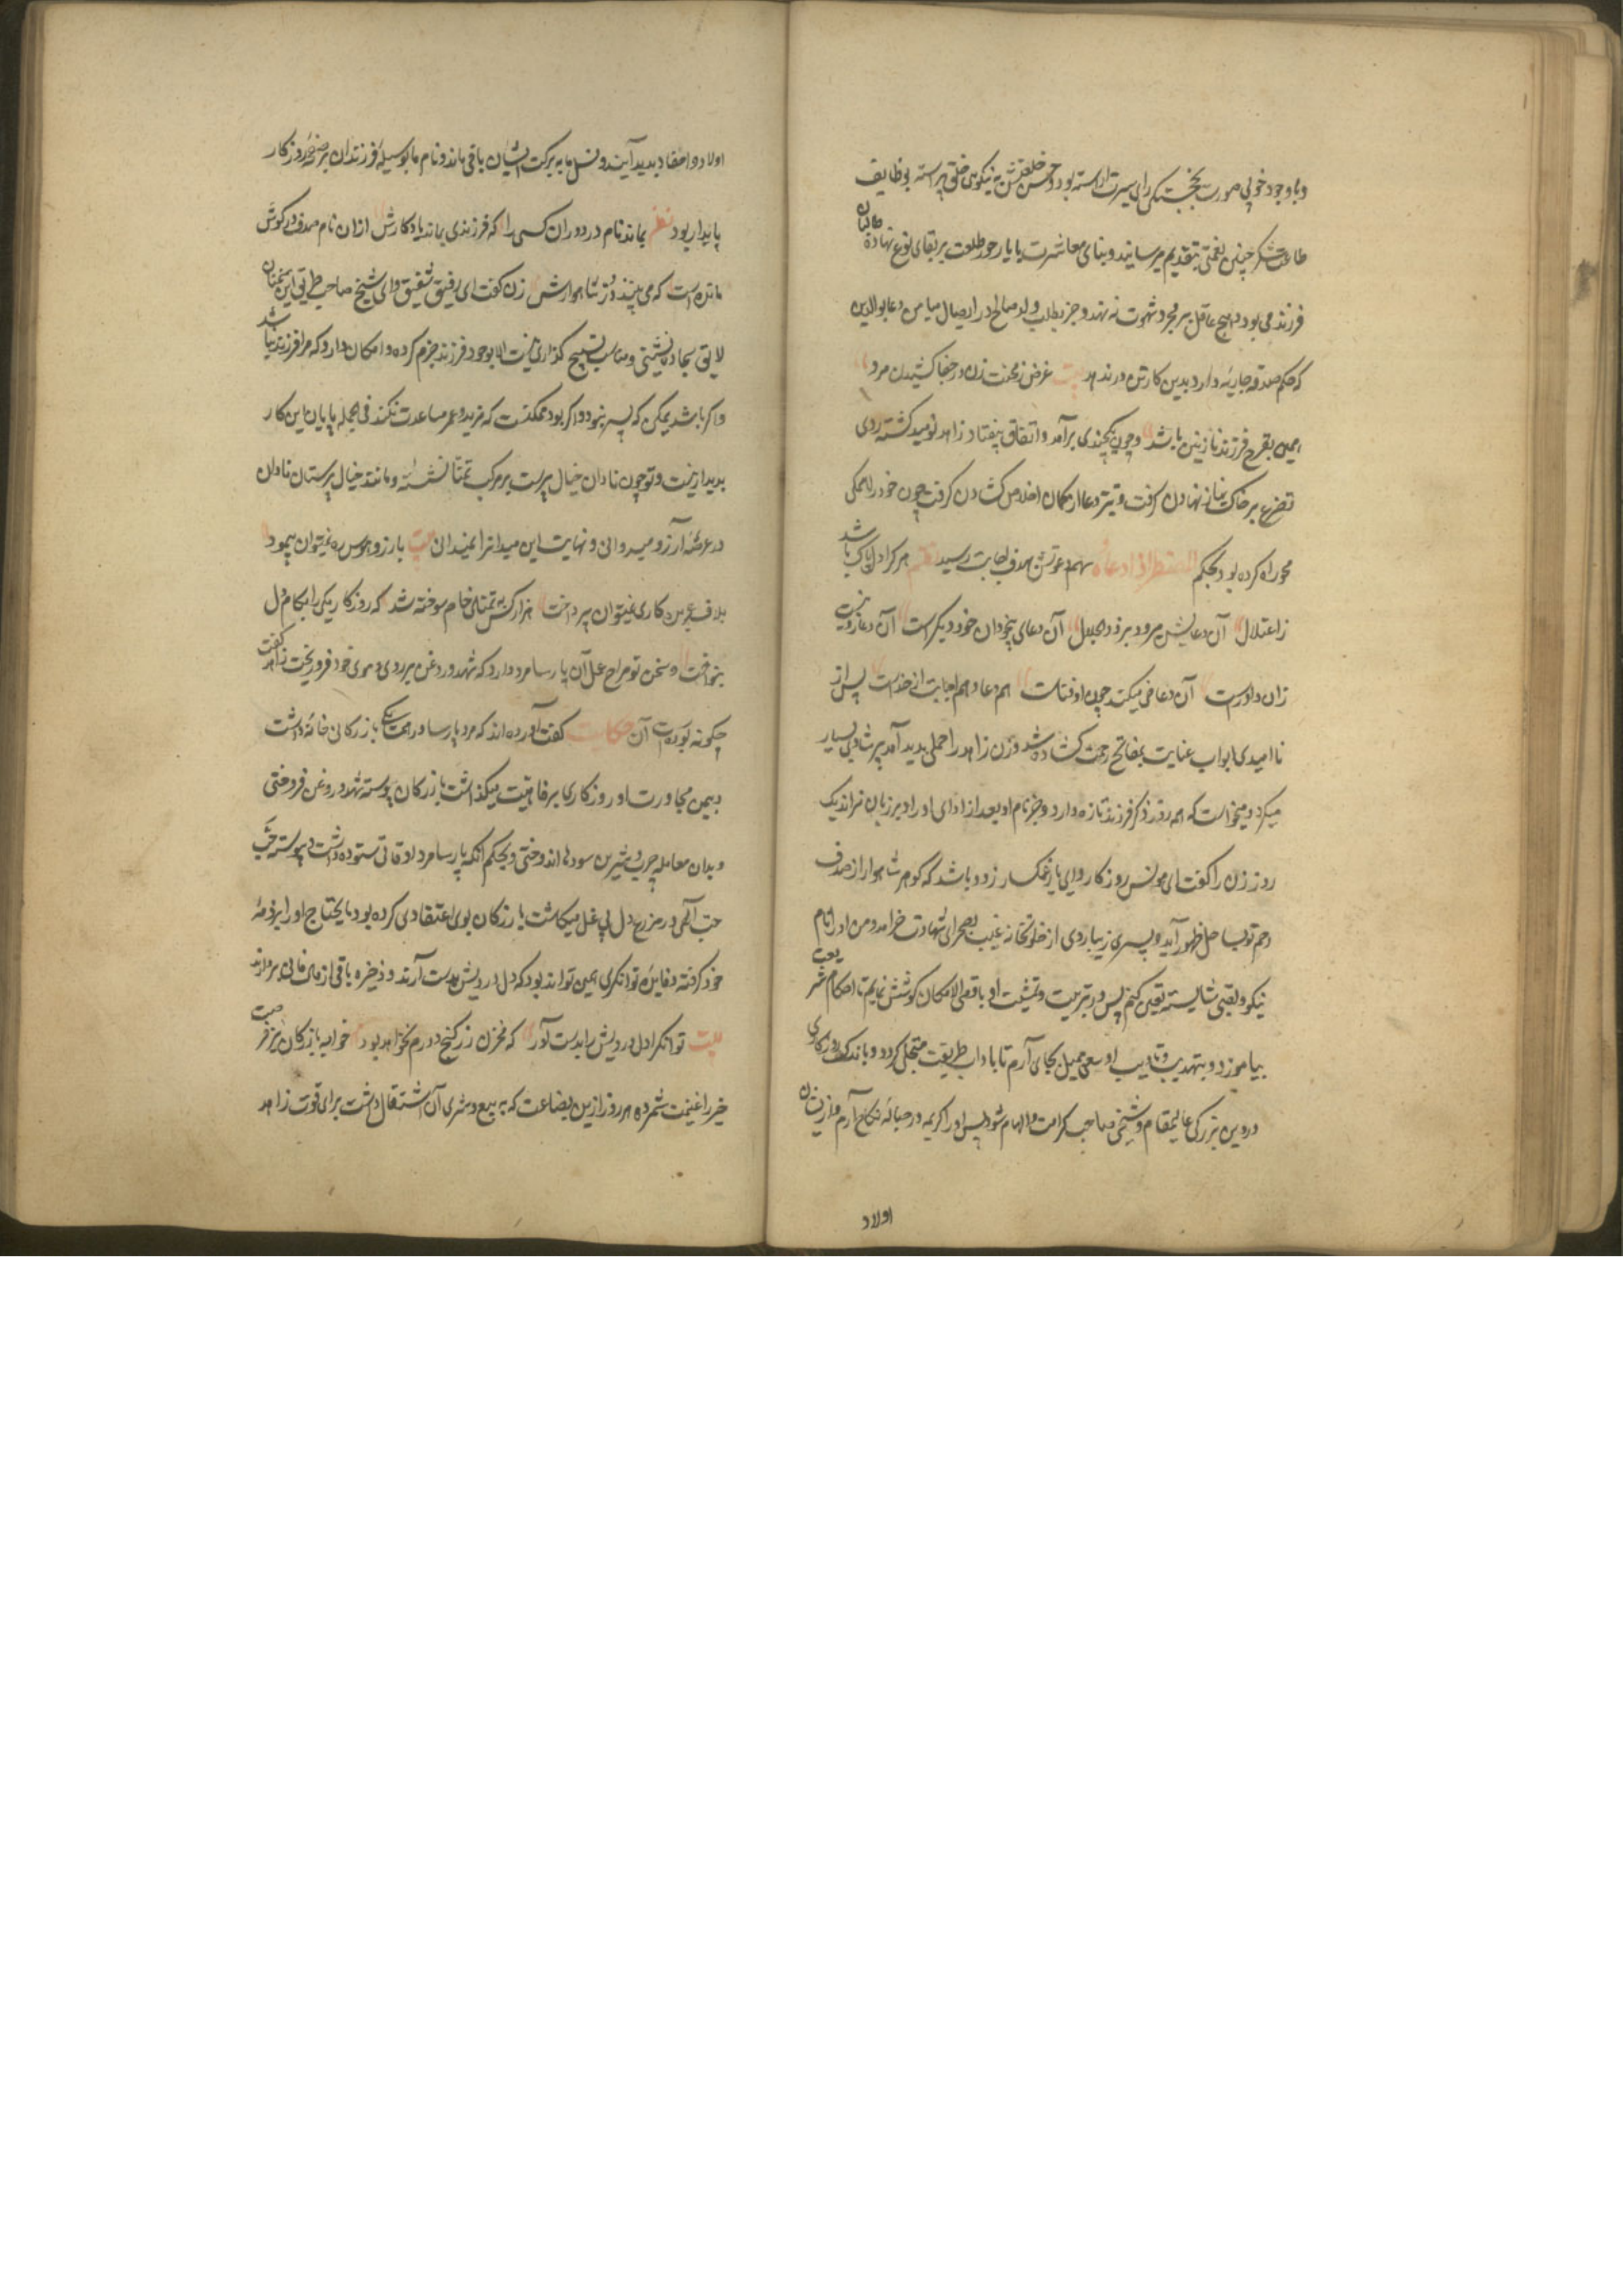 و با وجود خوبی صورت بخجستگی رای سیرت آراسته بود و حسن خلقتش به نیکویی خلق پیراسته بوظایف
طاعت شکر چنین نعمتی بتقدیم میرسانید و بنای معاشرت با یار حور طلعت بر بقای نوع نهاده طالبان
فرزند می بود و هیچ عاقل بر مجرد شهوت نه نهد و جز بطلب ولد صالح در ایصال میامن دعا بوالدین
که حکم صدقه جاریه دارد بدین کار تن در ندهد بیت غرض ز محنت زن در جفا کشیدن مرد
همین تفرج فرزند نازنین باشد و چون یکچندی برآمد و اتفاق نیفتاد زاهد نومید گشته روی
تضرع بر خاک نیاز نهادن گرفت و تیر دعا از کمان اخلاص گشادن گرفت چون خود را همگی
محو راه کرده بود بحکم المضطر اذا دعاه سهم دعوتش بهدف اجابت رسید نظم هر کرا دل پاک باشد
ز اعتلال آن دعایش میرود بر ذوالجلال آن دعای بیخودان خود دیگر است آن دعا زو نیست
زان داورست آن دعا حق میکند چون او فناست هم دعا و هم اجابت از خداست پس از
ناامیدی ابواب عنایت بمفاتح رحمت گشاده شد و زن زاهد را حملی پدید آمد پیر شادی بسیار
میکرد و میخواست که همه روز ذکر فرزند تازه دارد و جز نام او بعد از ادای اوراد بر زبان نراند یک
روز زن را گفت ای مونس روزگار و ای یار غمگسار زود باشد که گوهر شاهوار از صدف
رحم تو بساحل ظهور آید و پسری زیبا روی از خلوتخانه غیب بصحرای شهادت خرامد و من او را نام
نیکو و لقبی شایسته تعین کنم پس در تربیت و تمشیت او باقصی الامکان کوشش نمایم تا احکام شریعت
بیاموزد و بتهذیب و تادیب او سعی جمیل بجای آرم تا باداب طریقت متجلی گردد و باندک روزگاری
در دین بزرگی عالیمقام و شیخی صاحب کرامت و الهام شود پس او را کریمه در حباله نکاح آرم و ازیشان
اولاد
اولاد و احفاد پدید آیند و نسل ما به برکت ایشان باقی ماند و نام ما بوسیله فرزندان بر صفحه روزگار
پایدار بود نظم بماند نام در دوران کسی را که فرزندی بماند یادگارش ازان نام صدف در گوش
ماندست که می بینند در شاهوارش زن گفت ای رفیق شفیق و ای شیخ صاحب طریق این سخنان
لایق سجاده نشینی و مناسب تسبیح گذاری نیست اولا بوجود فرزند جزم کرده و امکان دارد که مرا فرزند نباشد
و اگر باشد یمکن که پسر نبود و اگر بود ممکنست که نزید و عمر مساعدت نکند فی الجمله پایان این کار
پدید نیست و تو چون نادان خیال پرست بر مرکب تمنا نشسته و مانند خیال پرستان نادان
در عرصه آرزو میدوانی و نهایت این میدانرا نمیدانی بیت بآرزو و هوس ره نمیتوان پیمود
بلاف و عربده کاری نمیتوان پرداخت هزار کس به تمنای خام سوخته شد که روزگار یکی را بکام دل
بنواخت و سخن تو مزاج عمل آن پارسا مرد دارد که شهد و روغن بر روی و موی خود فرو ریخت زاهد گفت
چگونه بوده است آن حکایت گفت آورده اند که مرد پارسا در همسایگی بازرگانی خانه داشت
و بیمن مجاورت او روزگاری برفاهیت میگذاشت بازرگان پیوسته شهد و روغن فروختی
و بدان معامله چرب و شیرین سودها اندوختی و بحکم آنکه پارسا مرد اوقاتی ستوده داشت و پیوسته تخم
حب الهی در مزرع دل بی غل میکاشت بازرگان بوی اعتقادی کرده بود و مایحتاج او را بر ذمه
خود گرفته و فایده توانگری همین تواند بود که دل درویش بدست آرند و ذخیره باقی از مال فانی بردارند
بیت توانگرا دل درویش را بدست آور که مخزن زر و گنج درم نخواهد بود خواجه بازرگان نیز فرصت
خیر را غنیمت شمرده هر روز ازین بضاعت که به بیع و شری آن اشتغال داشت برای قوت زاهد